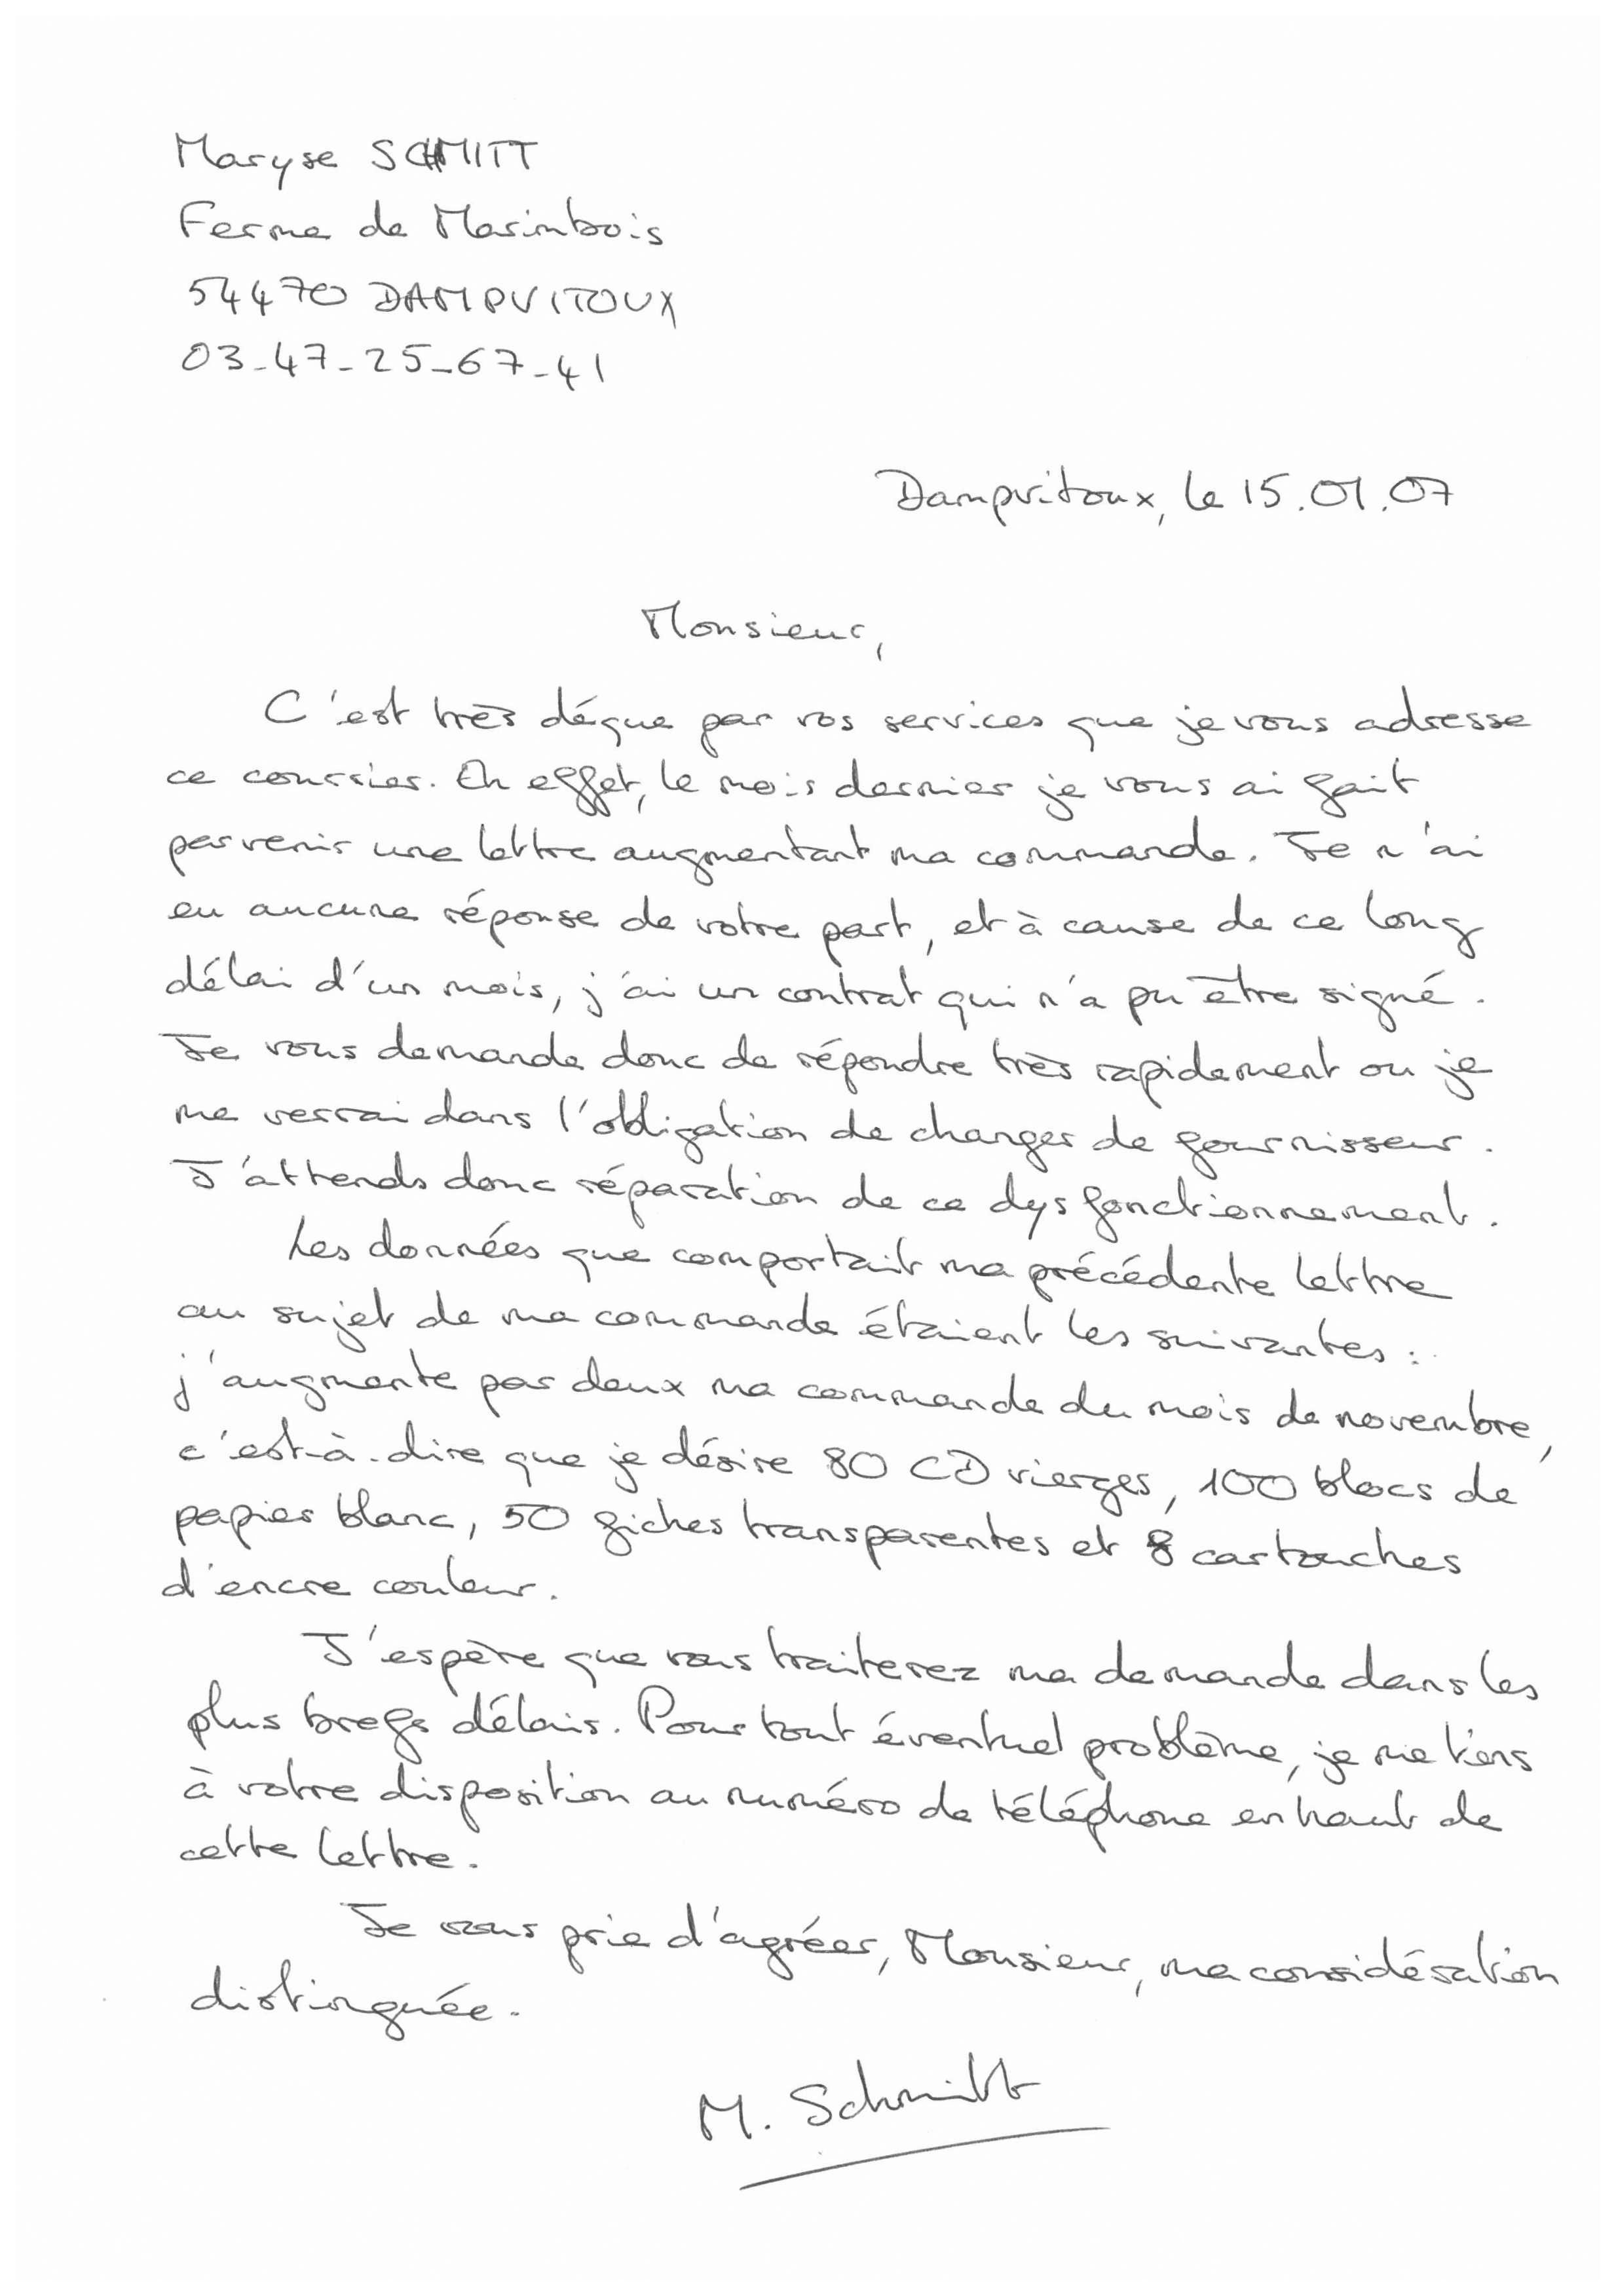 Maryse SCHMITT
Ferme de Marimbois
54470 DAMPVITOUX
03-47-25-67-41
Dampvitoux, le 15.01.07
Monsieur,
C'est très déçue par vos services que je vous adresse
ce courrier. En effet, le mois dernier je vous ai fait
parvenir une lettre augmentant ma commande. Je n'ai
eu aucune réponse de votre part, et à cause de ce long
délai d'un mois, j'ai un contrat qui n'a pu être signé.
Je vous demande donc de répondre très rapidement ou je
me verrai dans l'obligation de changer de fournisseur.
J'attends donc réparation de ce dysfonctionnement.
Les données que comportait ma précédente lettre
au sujet de ma commande étaient les suivantes :
j'augmente par deux ma commande du mois de novembre,
c'est-à-dire que je désire 80 CD vierges, 100 blocs de
papier blanc, 50 fiches transparentes et 8 cartouches
d'encre couleur.
J'espère que vous traiterez ma demande dans les
plus brefs délais. Pour tout éventuel problème, je me tiens
à votre disposition au numéro de téléphone en haut de
cette lettre.
Je vous prie d'agréer, Monsieur, ma considération
distinguée.
M. Schmitt